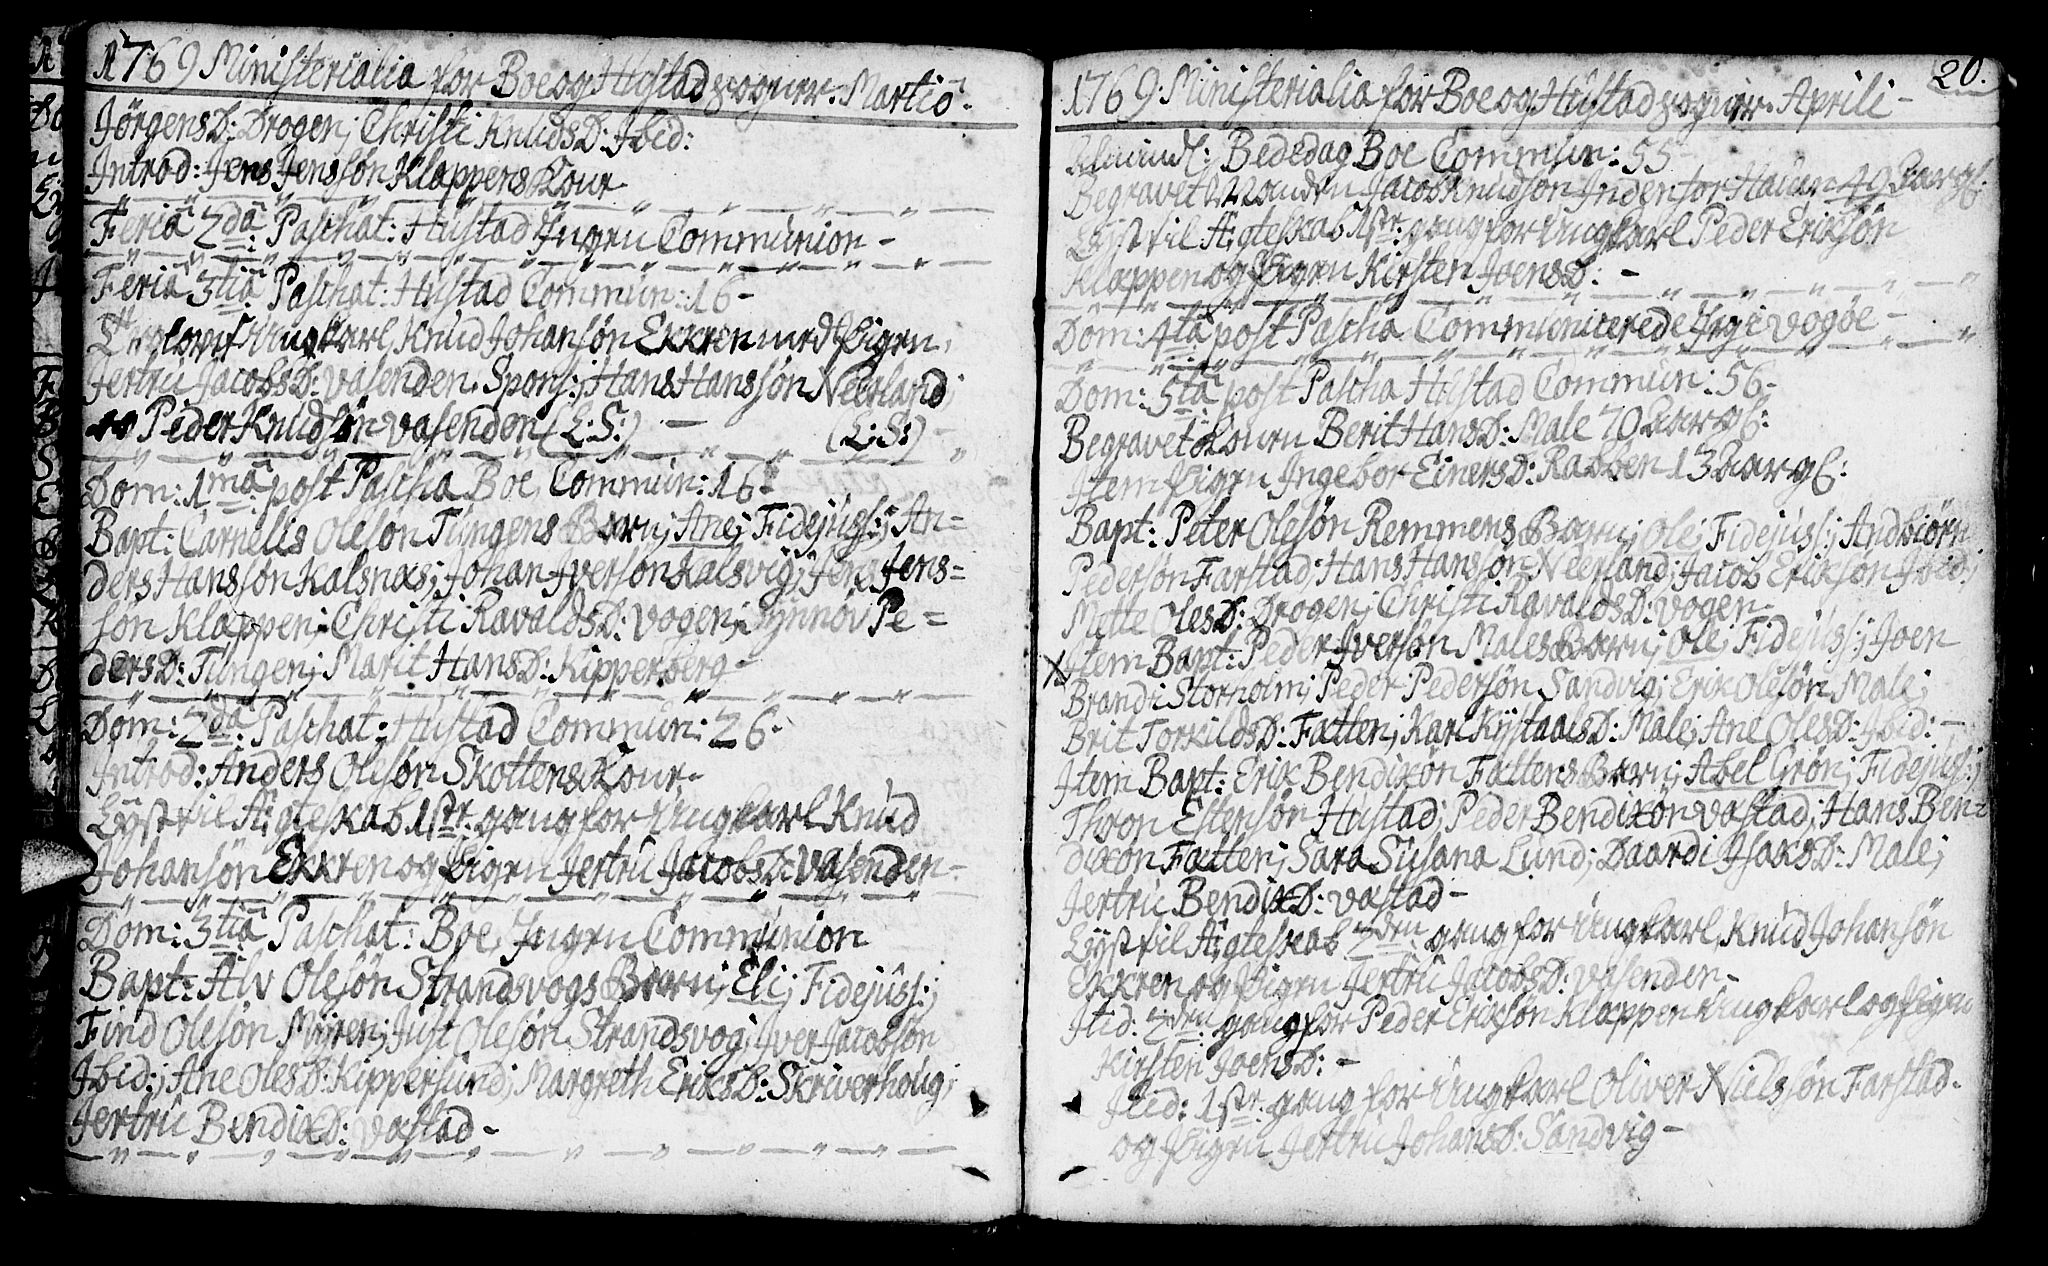 1769 Ministerialia for Boe og Hustad sogner. Martio.
JørgensD: Drogen; Christi KnudsD: Ibid:
Introd: Jens Jenssøn Klappens Kone
Feria 2da Paschat: Hustad Ingen Communion -
Feria 3tia Paschat: Hustad Commun: 16 -
Trolovet Ungkarl Knud Johansøn Ekkren med Pigen
Jertru JacobsD: Vasenden. Spons: Hans Hanssøn Neerland;
Peder Knudsøn Vasenden (L: S:) - (L: S:)
Dom: 1ma post Pascha Boe Commun: 16
Bapt: Carnelis Olesøn Tungens Barn; Ane; Fidejuss:; An=
ders Hanssøn Kalsnæs; Johan Iversøn Kalsvig; Jens Jens=
søn Klappen; Christi RavaldsD: Vogen; Synnøv Pe=
dersD: Tungen; Marit HansD: Kipperberg -
Dom: 2da Paschat: Hustad Commun: 26 -
Introd: Anders Olesøn Skottens Kone -
Lyst til Ægteskab 1ste gang for Ungkarl Knud
Johansøn Ekkren og Pigen Jertru JacobsD: Vasenden -
Dom: 3tia Paschat: Boe Ingen Communion
Bapt: Alv Olesøn Strandsvogs Barn; Eli; Fidejuss:;
Find Olesøn Myren; Just Olesøn Strandsvog; Iver Jacobsøn
Ibid:; Ane OlesD: Kippersund; Margreth EriksD: Skriverhoug;
Jertru BendixD: Vastad -
1769. Ministerialia for Boe og Hustad sogner. Aprili - 20.
Almindl: Bededag Boe Commun: 55 -
Begravet Manden Jacob Knudsøn Indenfor Hauen 49 Aar gl:
Lyst til Ægteskab 1ste gang for Ungkarl Peder Eriksøn
Klappen og Pigen Kirsten JoensD: -
Dom: 4ta post Pascha Communicerede Jeg i Vogøe -
Dom: 5ta post Pascha Hustad Commun: 56 -
Begravet Konen Berit HansD: Male 70 Aar gl:
Item Pigen Ingebor EinersD: Rabben 13 Aar gl:
Bapt: Peter Olesøn Remmens Barn; Ole; Fidejuss:; Andbiørn
Pedersøn Farstad; Hans Hanssøn Neerland; Jacob Eriksøn Ibid;
Mette OlesD: Drogen; Christi RavaldsD: Vogen -
X Item Bapt: Peder Iversøn Males Barn; Ole; Fidejuss:; Joen
Brandi Storholm; Peder Pedersøn Sandvig; Erik Olesøn Male;
Brit TorkildsD: Fatten; Kari KystaalsD: Male; Ane OlesD: Ibid: -
Item Bapt: Erik Bendixøn Fattens Barn; Abel Grøn; Fidejuss:;
Thron Estensøn Hustad; Peder Bendixøn Vastad; Hans Ben=
dixøn Fatten; Sara Susana Lund; Baardi IsaksD: Male;
Jertru BendixD: Vastad -
Lyst til Ægteskab 2den gang for Ungkarl Knud Johansøn
Ekkren og Pigen Jertru JacobsD: Vasenden -
Itid: 2den gang for Peder Eriksøn Klappen Ungkarl og Pigen
Kirsten JoensD: -
Itid: 1ste gang for Ungkarl Oliver Nielssøn Farstad -
og Pigen Jertru JohansD: Sandvig -